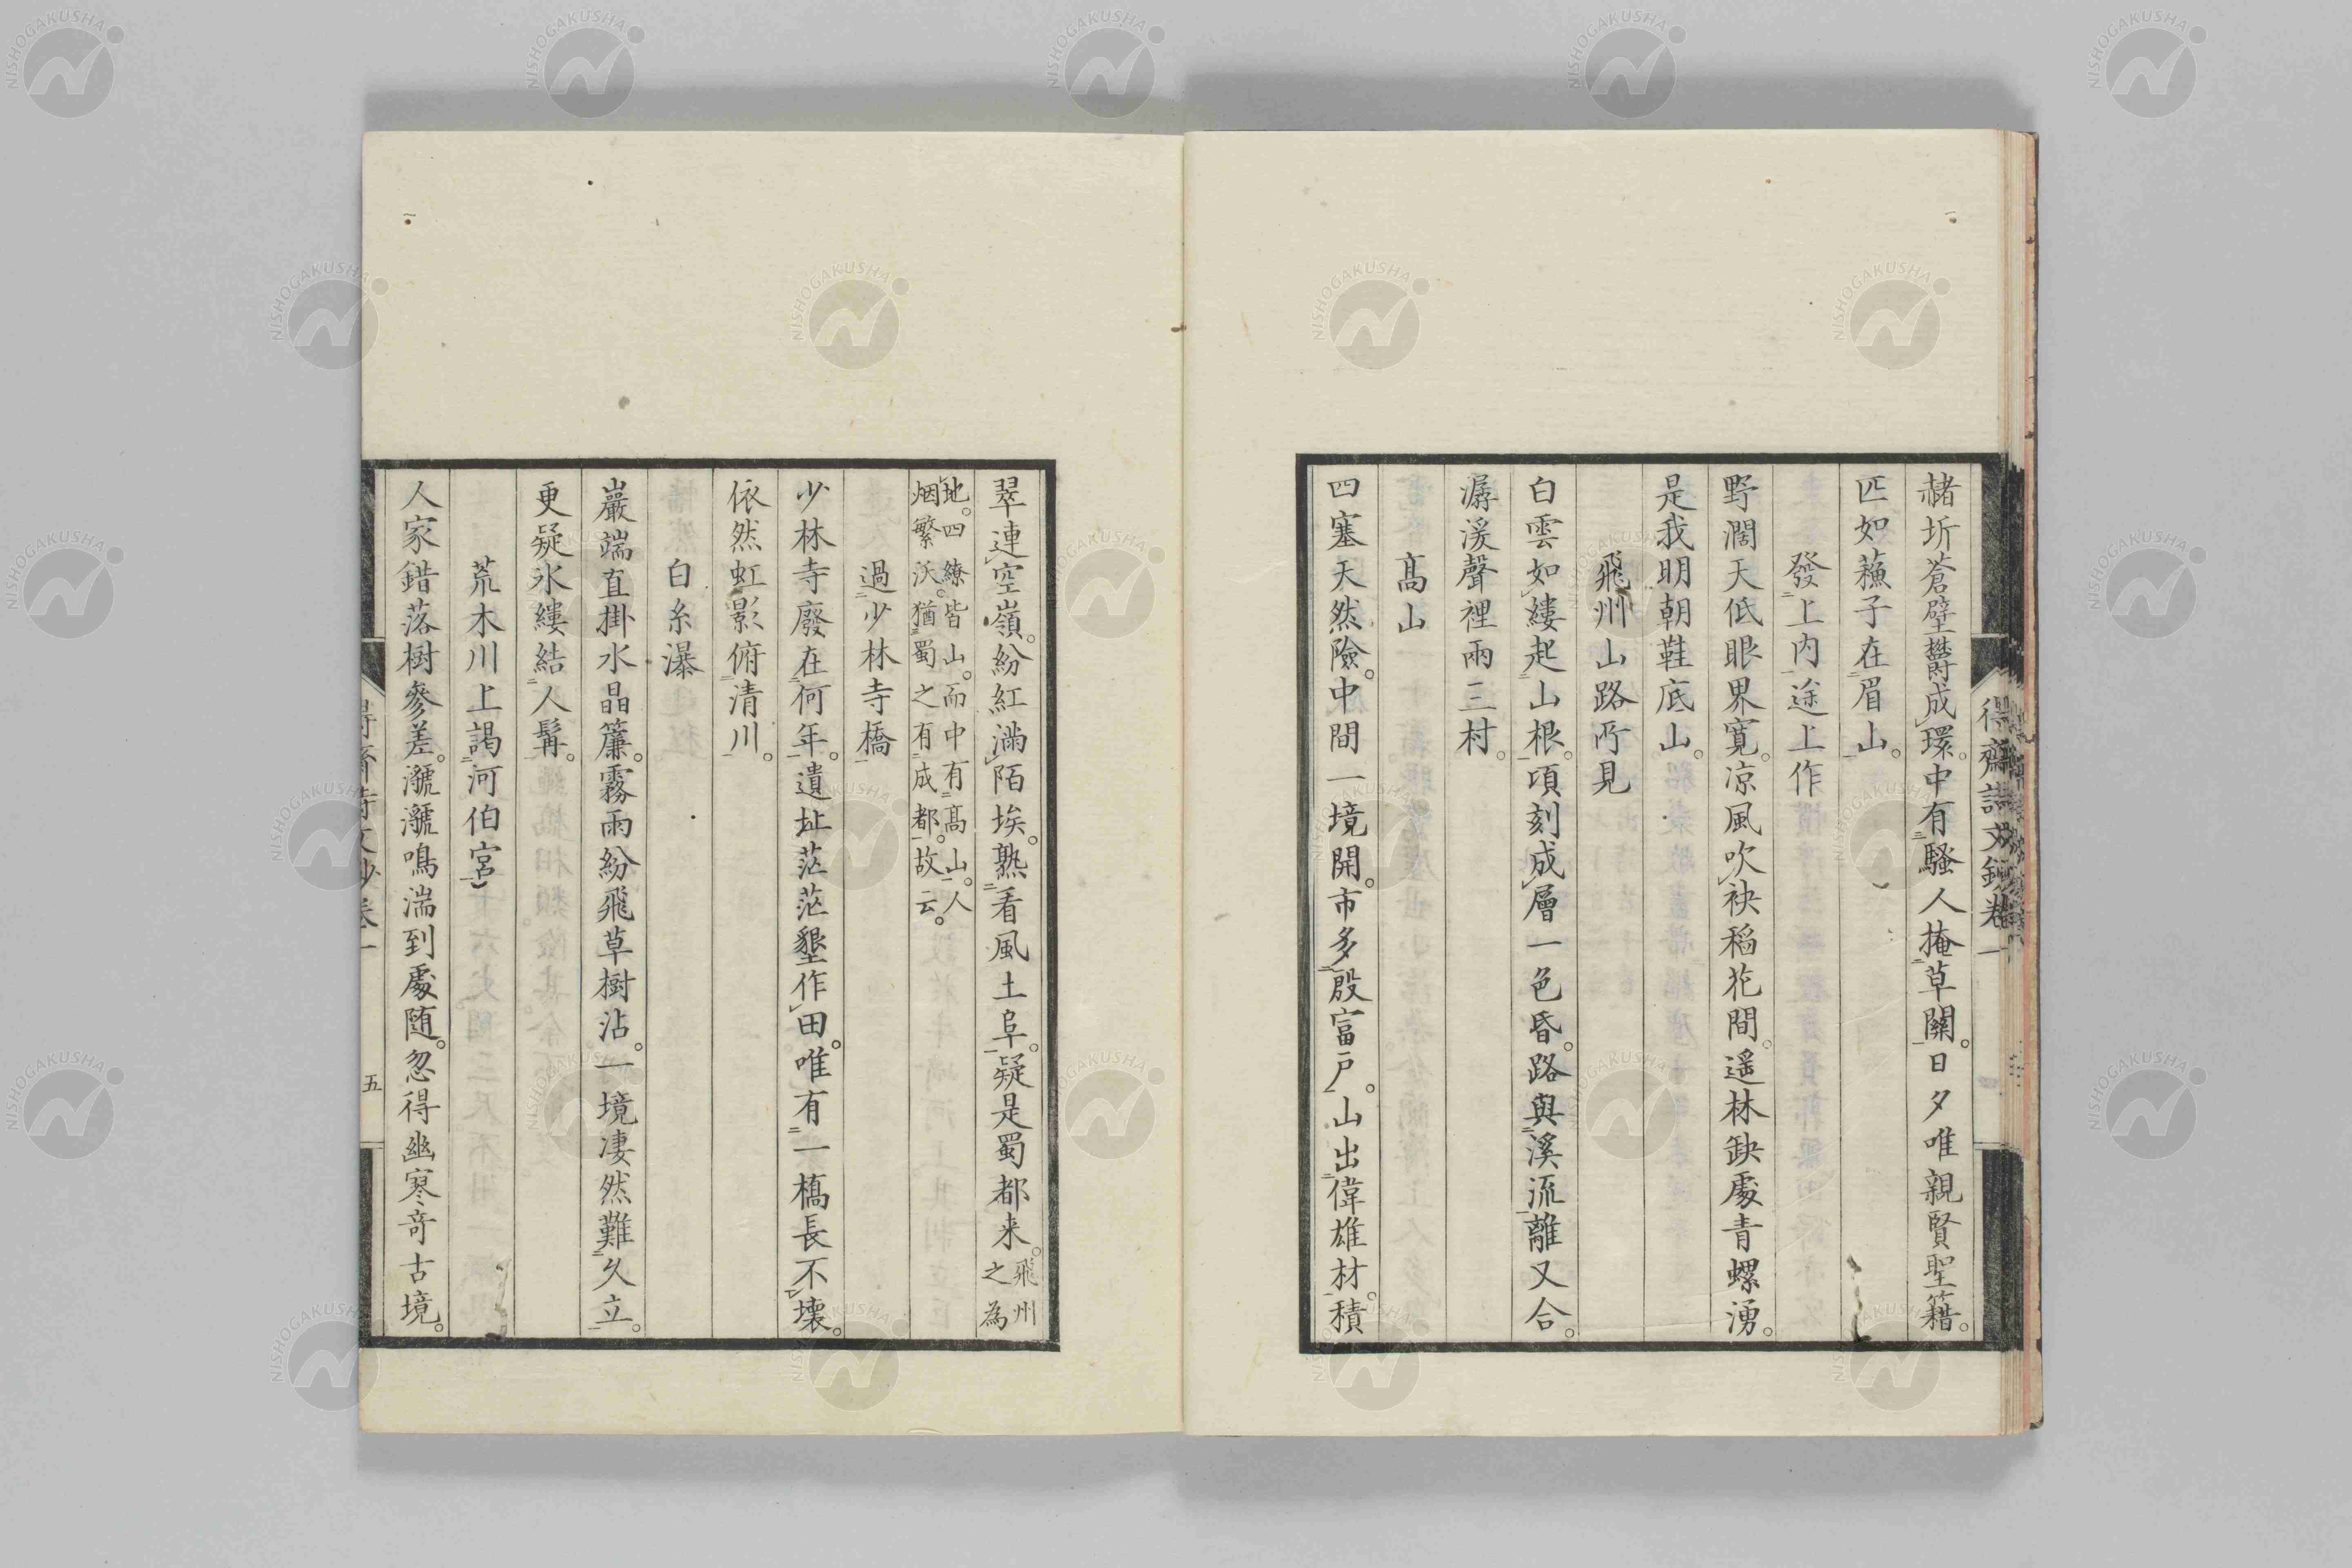 赭圻蒼壁欝成環。中有騷人掩草關。日夕唯親賢聖籍。
匹如蘓子在眉山。
發上内途上作
野濶天低眼界寛。凉風吹袂稻花間。遥林缺處青螺湧。
是我明朝鞋底山。
飛州山路所見
白雲如縷起山根。項刻成層一色昏。路與溪流離又合。
潺湲聲裡兩三村。
髙山
四塞天然險。中間一境開。市多殷富戸。山出偉雄材。積
翠連空嶺。紛紅滿陌埃。熟看風土阜。疑是蜀都来。飛州之為
地。四繚皆山。而中有髙山。人
烟繁沃。猶蜀之有成都。故云。
過少林寺橋
少林寺廢在何年。遺址茫茫墾作田。唯有一橋長不壞。
依然虹影俯清川。
白糸瀑
巖端直掛水晶簾。霧雨紛飛草樹沾。一境凄然難久立。
更疑氷縷結人髯。
荒木川上謁河伯宮
人家錯落樹參差。㶁㶁鳴湍到處随。忽得幽寒奇古境。
得齋詩文鈔卷一
五
NISHOGAKUSHA